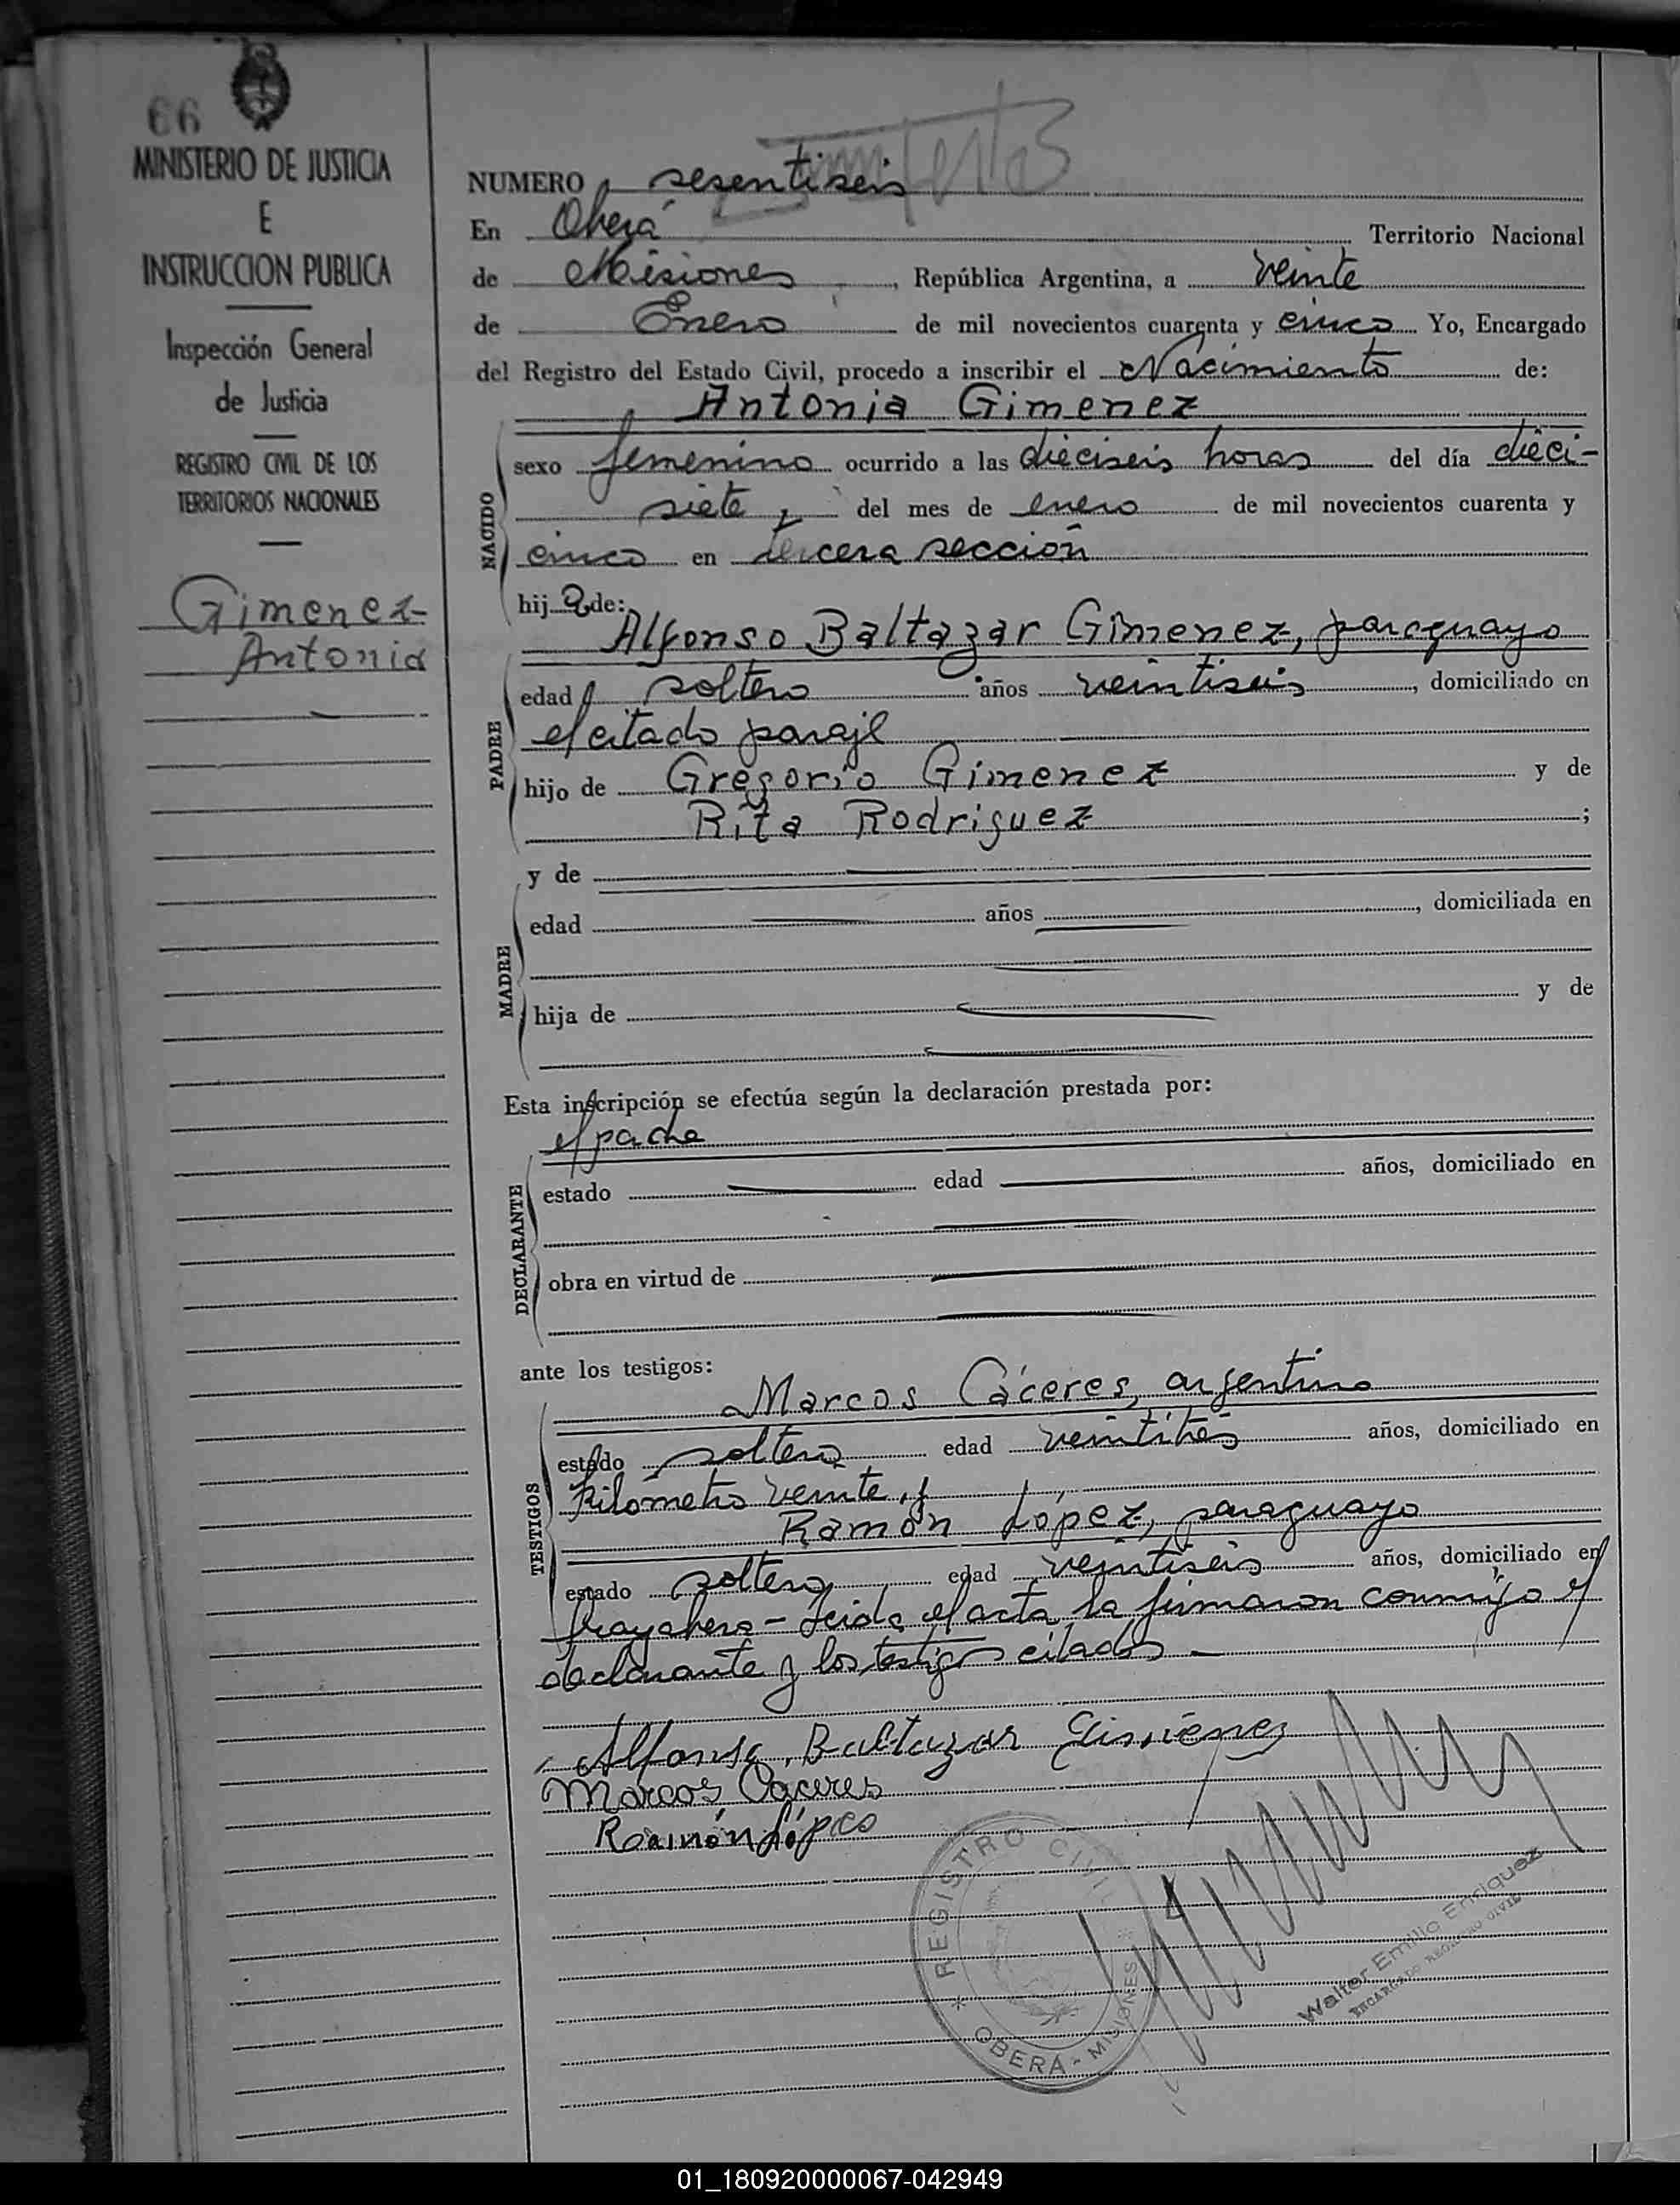 66
MINISTERIO DE JUSTICIA
E
INSTRUCCION PUBLICA
Inspección General
de Justicia
REGISTRO CIVIL DE LOS
TERRITORIOS NACIONALES
Gimenez
Antonia
NUMERO sesentiseis
En Oberá Territorio Nacional
de Misiones, República Argentina, a veinte
de Enero de mil novecientos cuarenta y cinco Yo, Encargado
del Registro del Estado Civil, procedo a inscribir el Nacimiento de:
Antonia Gimenez
NACIDO
sexo femenino ocurrido a las dieciseis horas del día dieci-
siete del mes de enero de mil novecientos cuarenta y
cinco en tercera sección
hija de:
Alfonso Baltazar Gimenez, paraguayo
PADRE
edad soltero años veintiseis, domiciliado en
el citado paraje
hijo de Gregorio Gimenez y de
Rita Rodriguez;
y de
MADRE
edad años, domiciliada en
hija de y de
Esta inscripción se efectúa según la declaración prestada por:
el padre
DECLARANTE
estado edad años, domiciliado en
obra en virtud de
ante los testigos:
Marcos Cáceres, argentino
TESTIGOS
estado soltero edad veintitrés años, domiciliado en
Kilometro veinte, y
Ramón López, paraguayo
estado soltero edad veintiseis años, domiciliado en
- Leida el acta, la firmaron conmigo el
declarante y los testigos citados -
Alfonso Baltazar Giménez
Marcos Caceres
Ramón López
REGISTRO CIVIL
OBERÁ - MISIONES
Walter Emilio Enriquez
ENCARGADO REGISTRO CIVIL
01_180920000067-042949